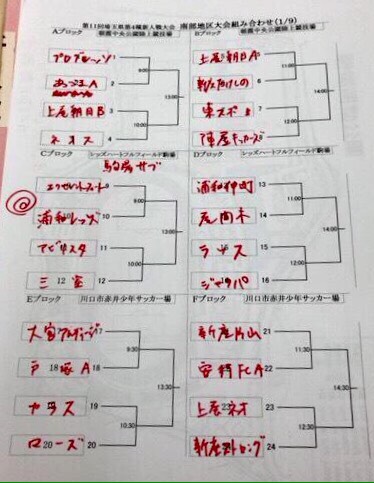 第11回埼玉県第4種新人戦大会 南部地区大会組み合わせ(1/9)
Aブロック 朝霞中央公園陸上競技場
プログレッソ 1
あづま A 2
上尾朝日B 3
ネオス 4
9:00
10:00
13:00
Bブロック 朝霞中央公園陸上競技場
上尾朝日A 5
新座たけしの 6
東スポ 7
陣屋キッカーズ 8
11:00
12:00
14:00
Cブロック シッズハートフルフィールド駒場
駒場サブ
エクセレントフィート 9
浦和レッズ 10
アビリスタ 11
三室 12
9:00
10:00
13:00
Dブロック シッズハートフルフィールド駒場
浦和仲町 13
尾間木 14
15
16
11:00
12:00
14:00
Eブロック 川口市赤井少年サッカー場
大宮アルディージャ 17
戸塚A 18
19
ローズ 20
9:30
10:30
13:30
Fブロック 川口市赤井少年サッカー場
新座片山 21
安行FC A 22
上尾ネオ 23
新座ストロング 24
11:30
12:30
14:30